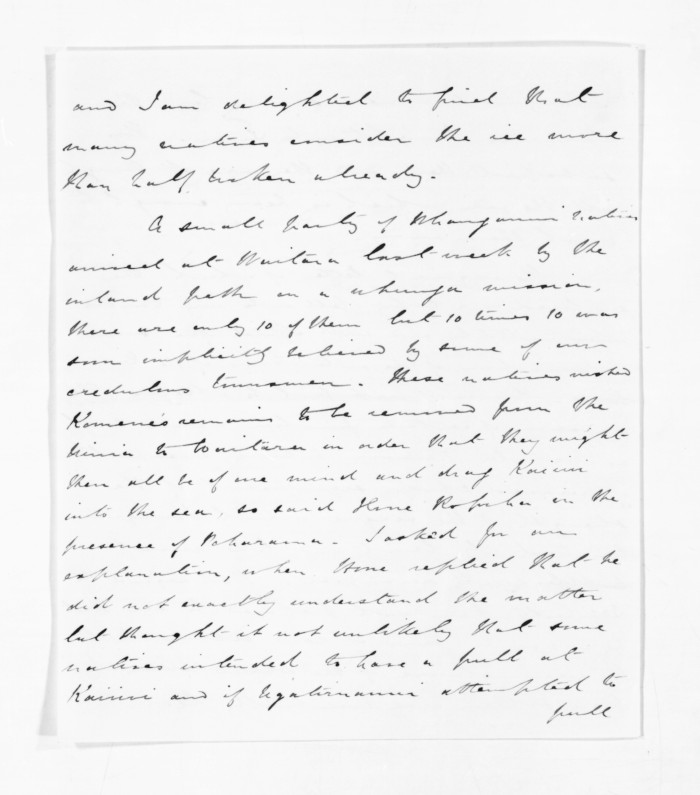 and I am delighted to find that
many natives consider the ice more
than half broken already.
A small party of Whanganui natives
arrived at Waitara last week by the
inland path on a uhunga mission,
there are only 10 of them but 10 times 10 was
soon implicitly believed by some of our
credulous townsmen. These natives wished
Komene's remains to be removed from the
to Waitara in order that they might
then all be of one mind and drag Kaiiwi
into the sea, so said Hone Ropiha in the
presence of Poharama. I asked for an
explanation, when Hone replied that he
did not exactly understand the matter
but thought it not unlikely that some
natives intended to have a pull at
Kaiiwi and if Ngatiruanui attempted to
pull